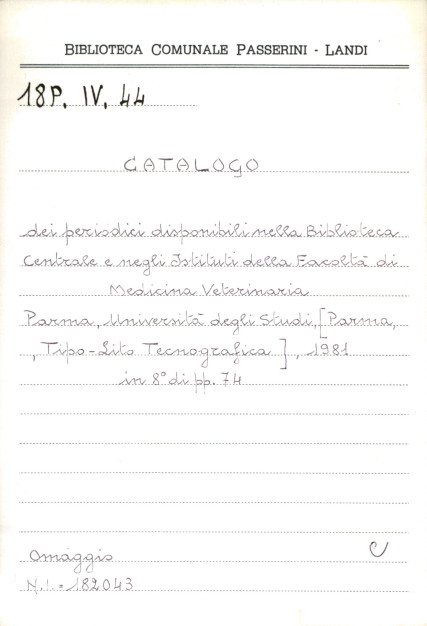 BIBLIOTECA COMUNALE PASSERINI - LANDI
18P. IV. 44
CATALOGO
dei periodici disponibili nella Biblioteca
Centrale e negli Istituti della Facoltà di
Medicina Veterinaria
Parma, Università degli Studi, [Parma,
, Tipo-Lito Tecnografica ], 1981
in 8° di pp. 74
Omaggio
C
N.I. = 182043